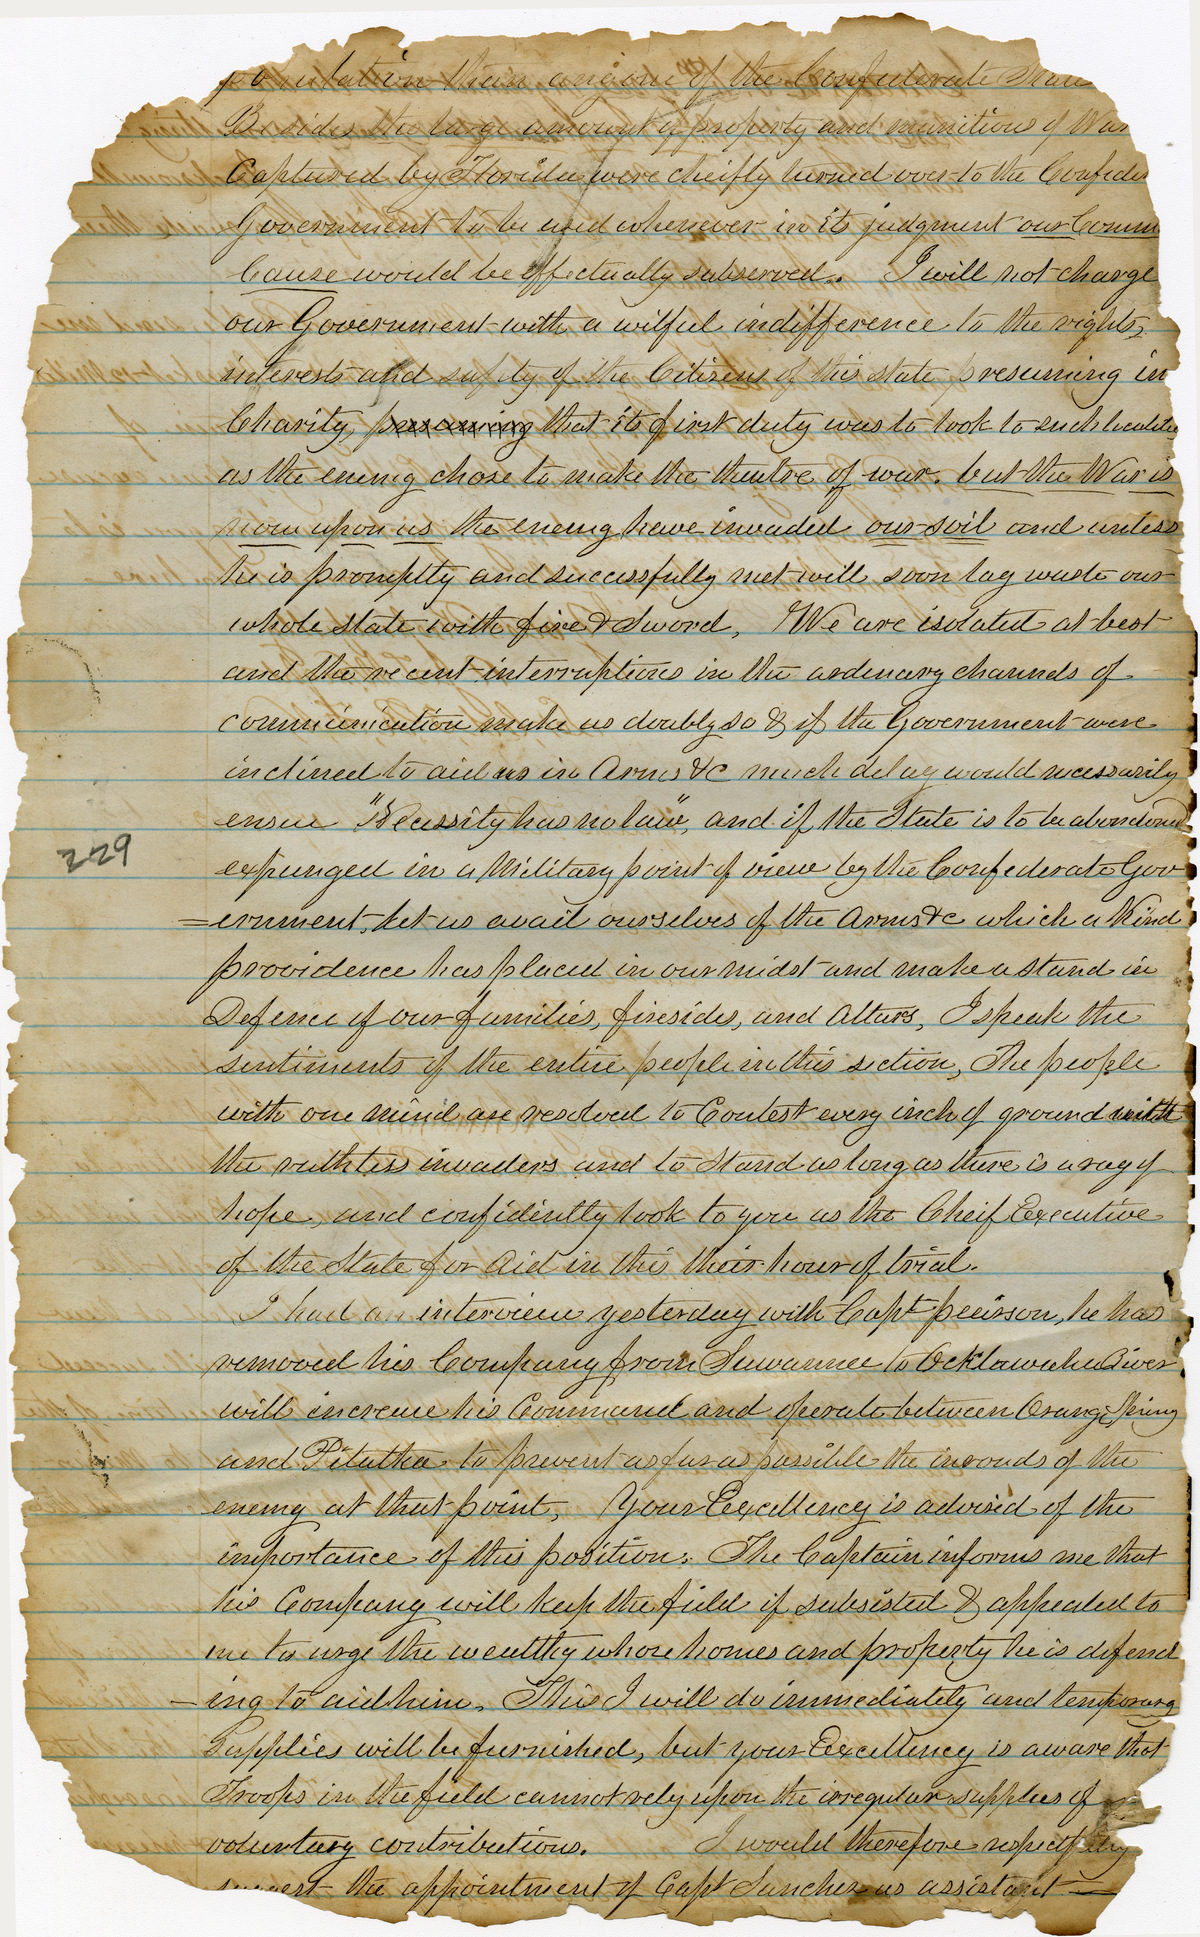 population than anyone of the Confederate State
Besides the large amount of property and munitions of War
Captured by Florida were cheifly turned over to the Confeder
Government to be used whenever in its judgment our Comm
Cause would be effectually subserved. I will not charge
our Government with a wilful indifference to the rights,
interests and safety of the Citizens of this state presuming in
Charity, presuming that its first duty was to look to such localities
as the enemy chose to make the theatre of war. but the War is
now upon us the enemy have invaded our soil and unless
he is promptly and successfully met will soon lay waste our
whole state with fire & Sword, We are isolated at best
and the recent interruptions in the ordenary channels of
communication make us doubly so & if the Government were
inclined to aid us in Arms &c much delay would necessarily
ensue "Necessity has no law", and if the State is to be abandoned
expunged in a Military point of view by the Confederate Gov
=ernment, let us avail ourselves of the Arms &c which a Kind
providence has placed in our midst and make a stand in
Defence of our families, firesides, and Altars, I speak the
sentiments of the entire people in this section, The people
with one mind are resolved to Contest every inch of ground with
the ruthless invaders and to Stand as long as there is a ray of
hope, and confidently look to you as the Cheif Executive
of the State for Aid in this their hour of trial.
I had an interview yesterday with Capt pearson, he has
removed his Company from Suwannee to Ocklawaha River
will increase his Command and operate between Orange Spring
and Pilatka to prevent as far as possible the inroads of the
enemy at that point, Your Excellency is advised of the
importance of this position. The Captain informs me that
his Company will keep the field if subsisted & appealed to
me to urge the wealthy whose homes and property he is defend
-ing to aid him, This I will do immediately and temporary
Supplies will be furnished, but your Excellency is aware that
Troops in the field cannot rely upon the irregular supplies of
voluntary contributions. I would therefore respectfully
suggest the appointment of Capt Sanchez as assistant
229